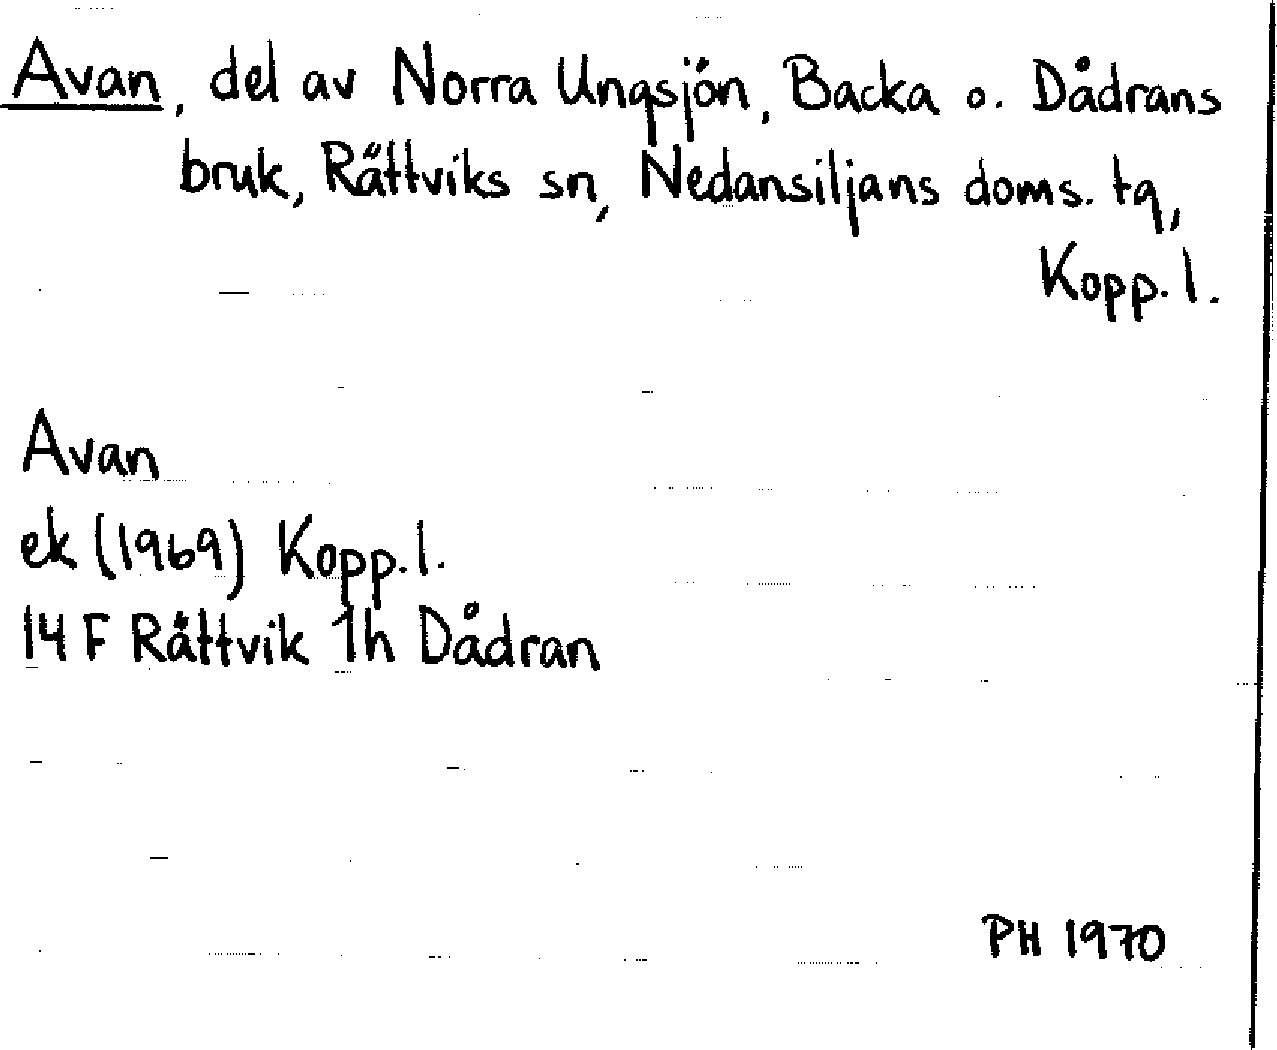 Avan, del av Norra Ungsjön, Backa o. Dådrans
bruk, Rättviks sn, Nedansiljans doms. tg,
Kopp. l.
Avan
ek (1969) Kopp. l.
14 F Rättvik 1h Dådran
PH 1970